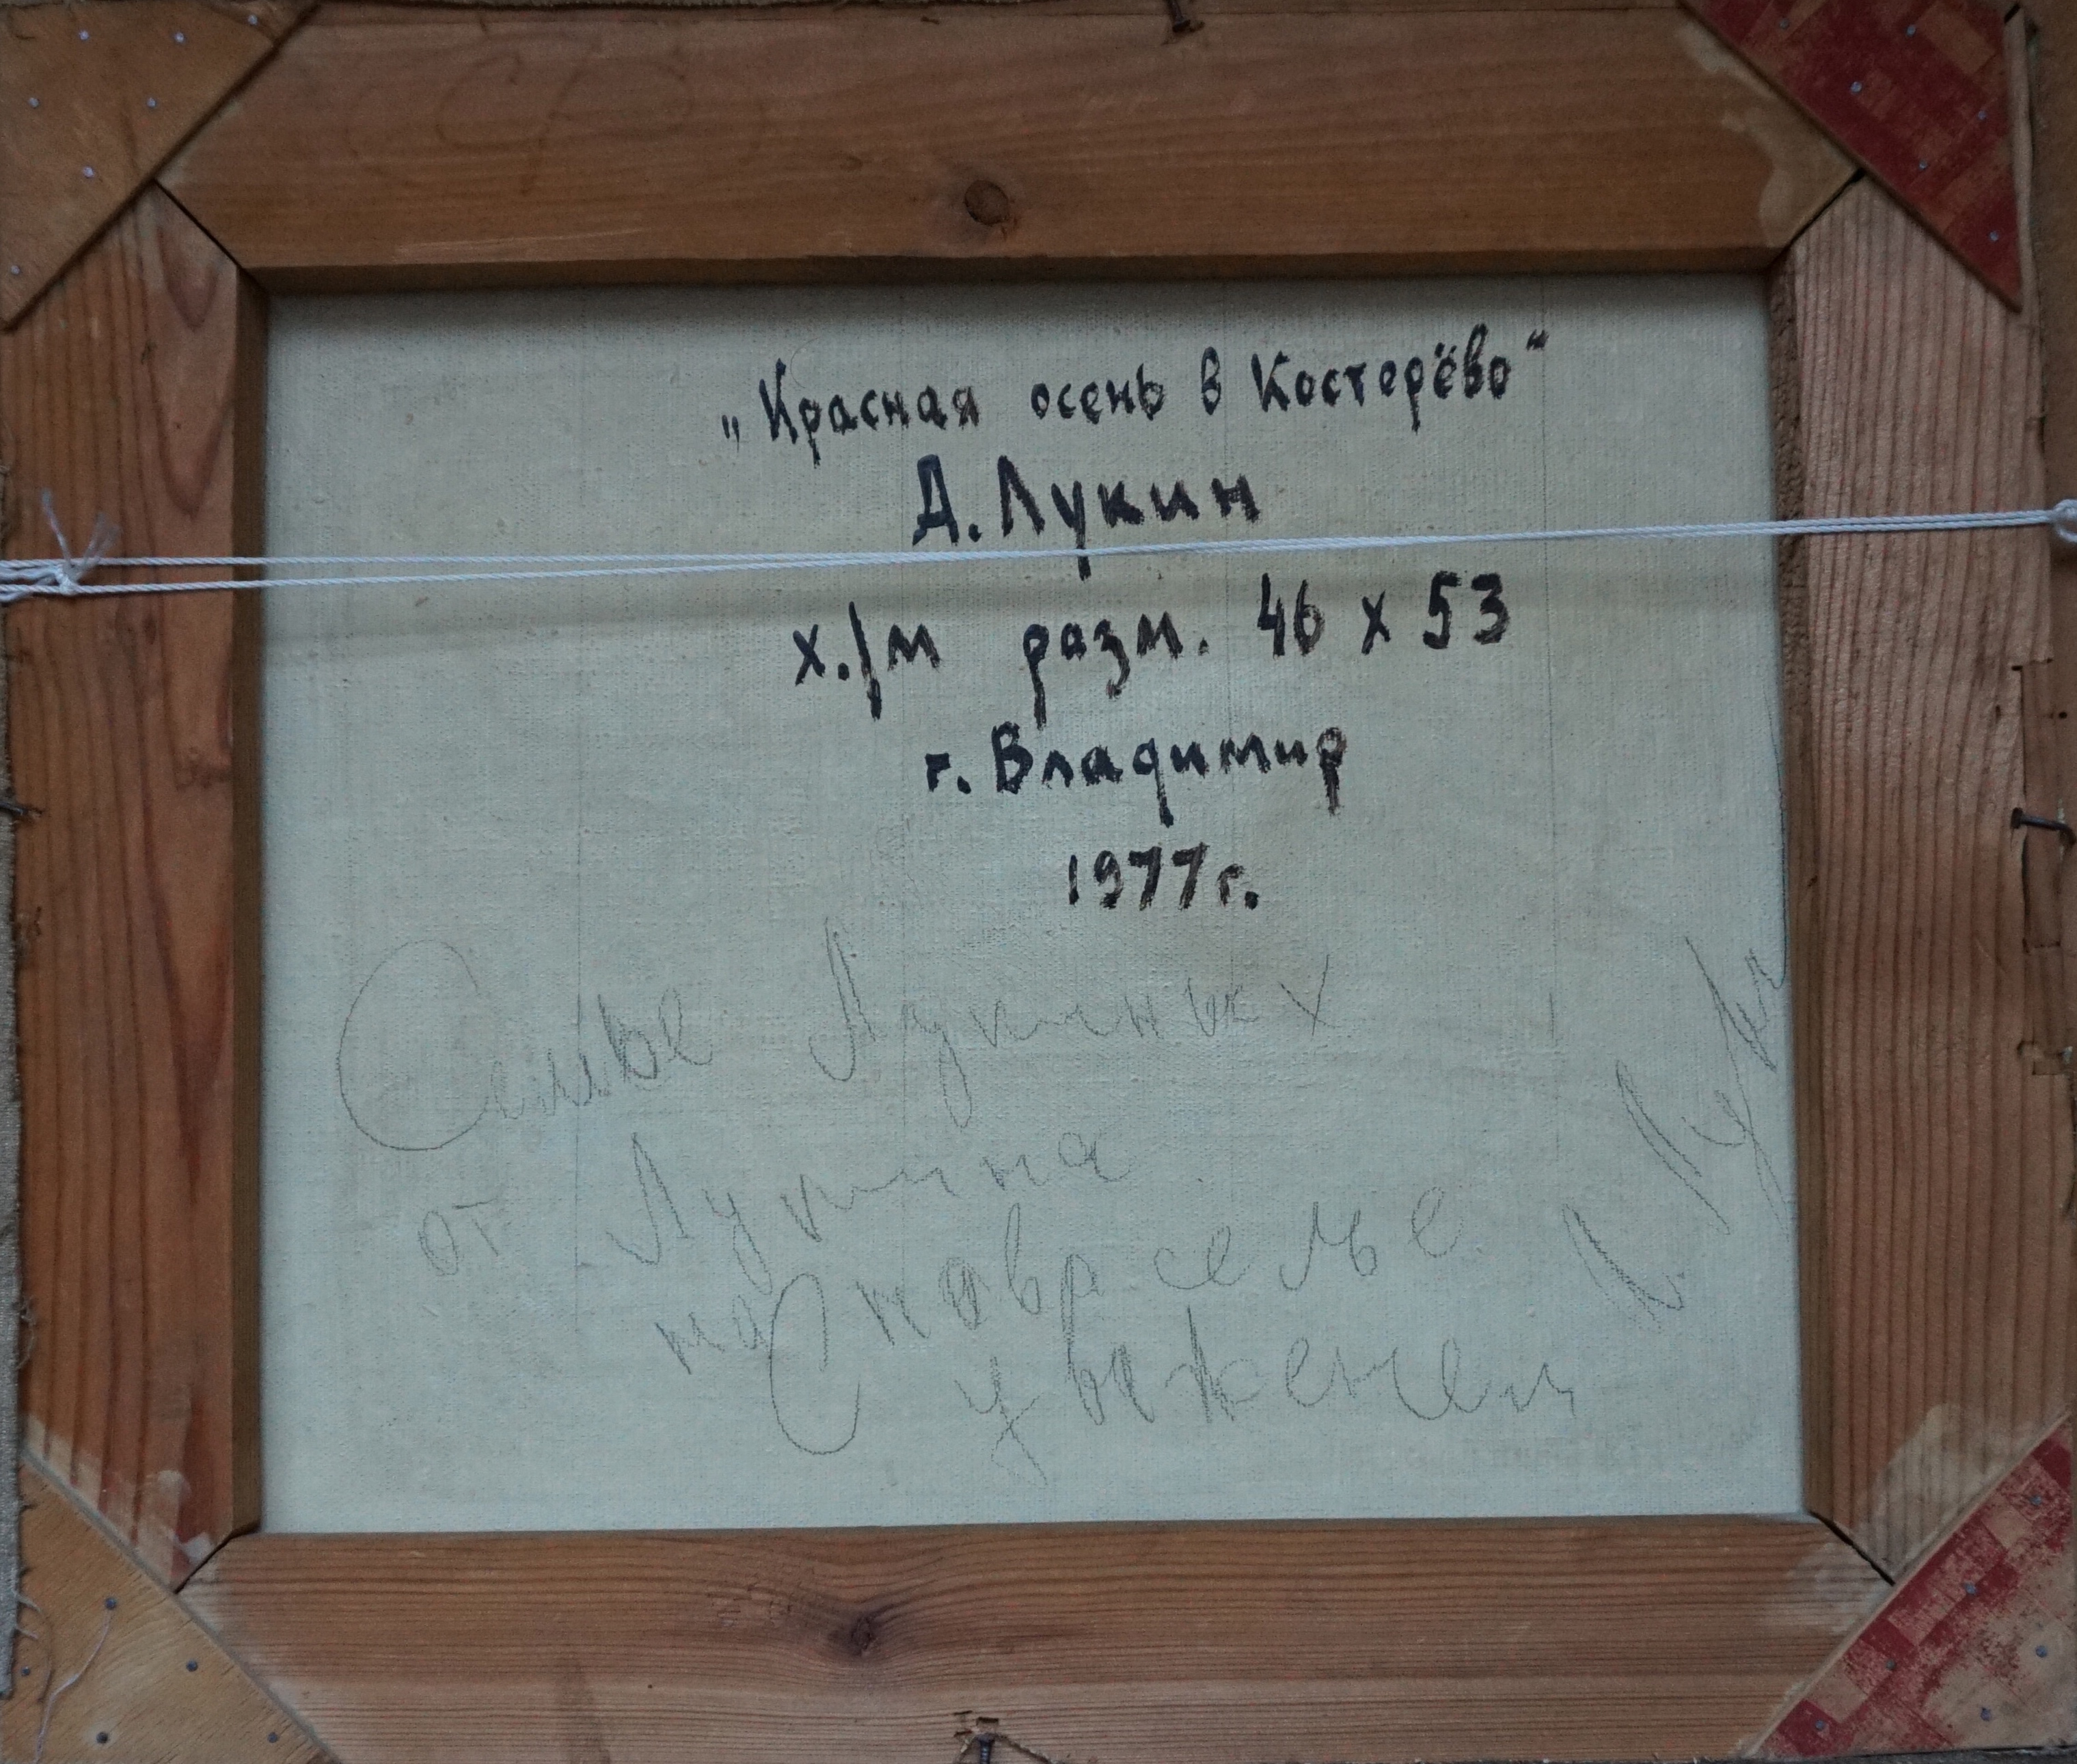 „Красная осень в Костерёво“
Д. Лукин
х./м разм. 46 х 53
г. Владимир
1977 г.
Семье Лукиных
от Лукина
на новоселье
С уважением